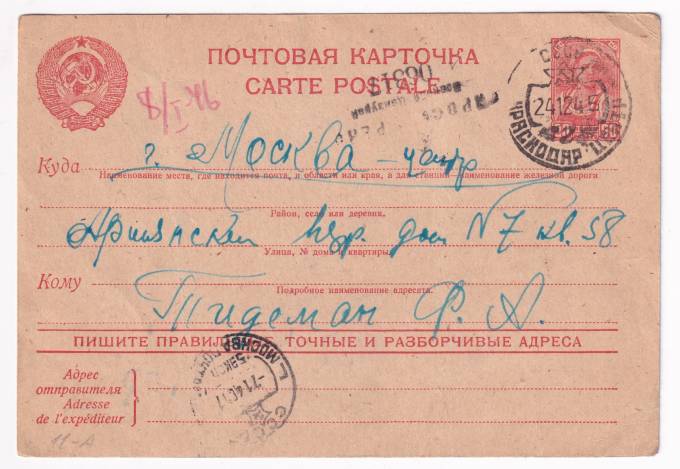 ПОЧТОВАЯ КАРТОЧКА
CARTE POSTALE
06313
СССР
24 12 45
КРАСНОДАР
Куда
г. Москва - центр
Наименование места, где находится почта, и области или края, а для станций наименование железной дороги
Район, село или деревня.
пер. дом N7 кв. 58
Улица, № дома и квартиры
Кому
Подробное наименование адресата.
Тидеман Ф. А.
ПИШИТЕ ТОЧНЫЕ И РАЗБОРЧИВЫЕ АДРЕСА
Адрес
отправителя
Adresse
de l'expéditeur
МОСКВА
11-А